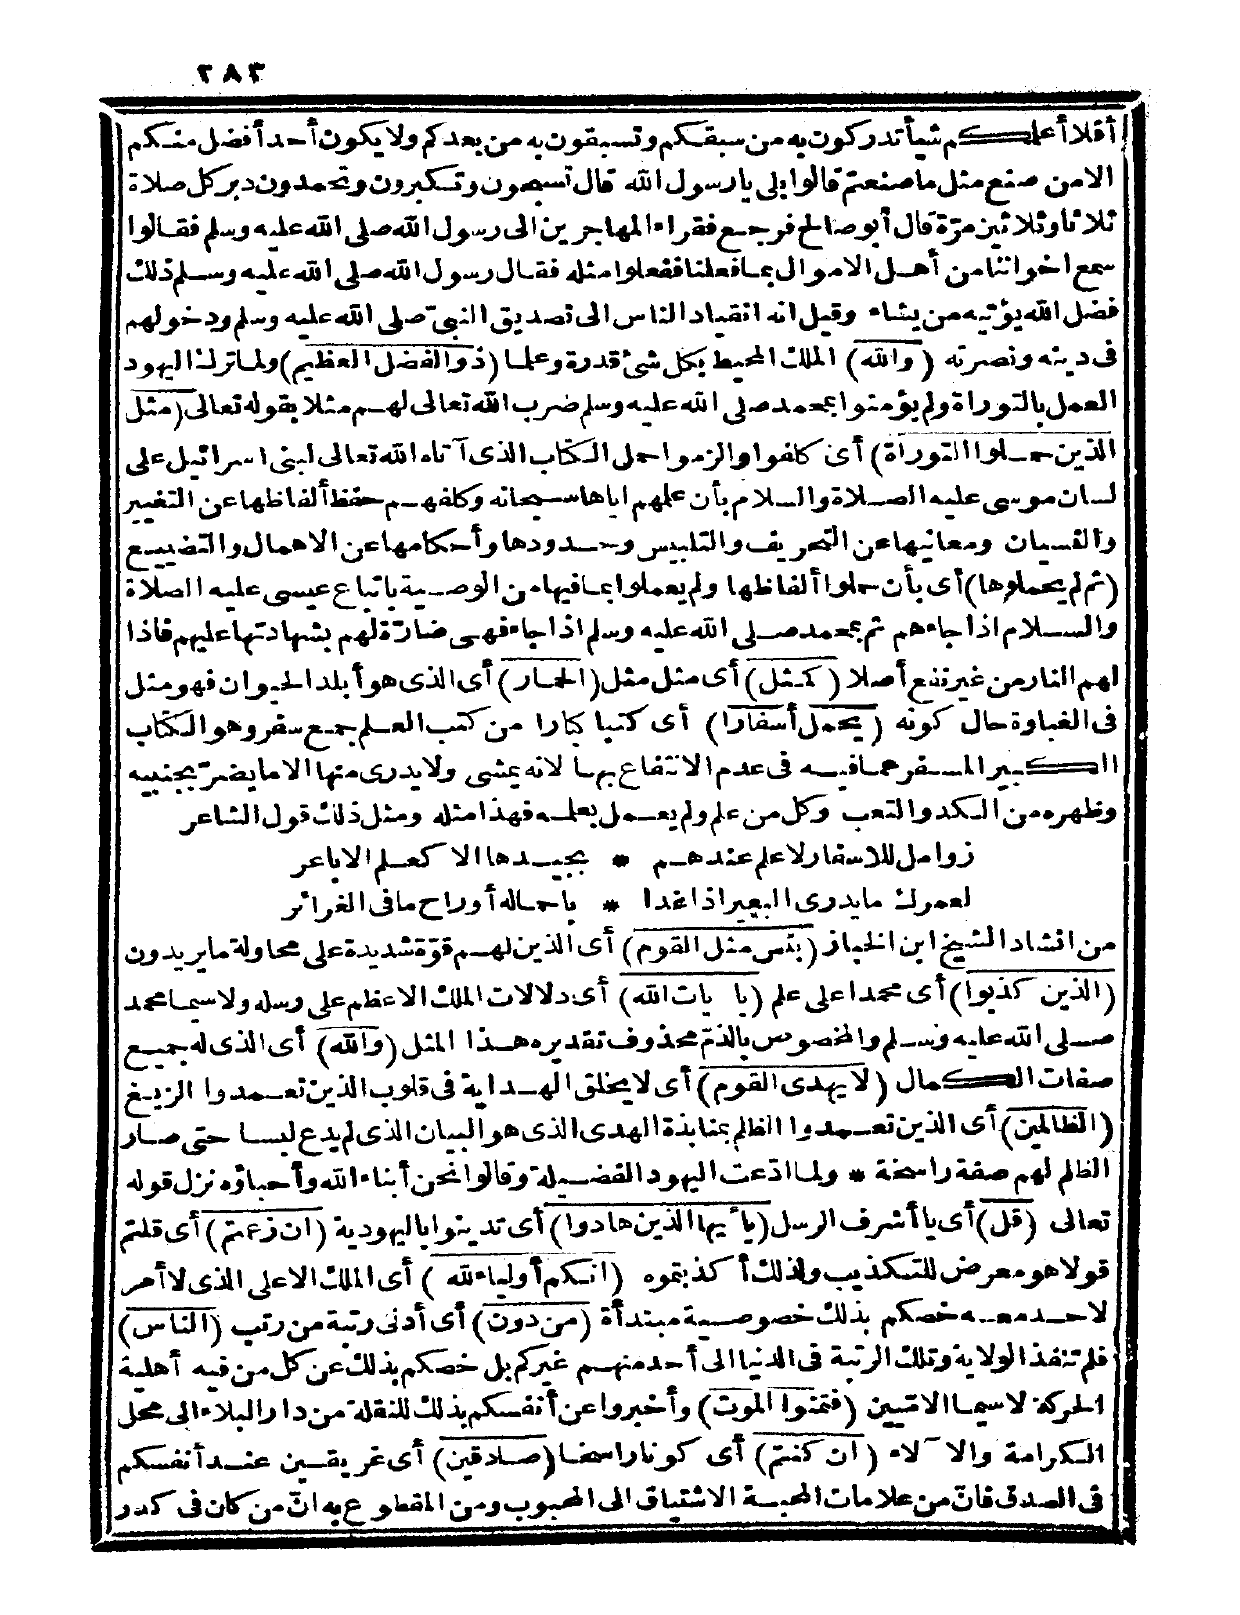 ٢٨٣
أفلا أعلمكم شيأ تدركون به من سبقكم وتسبقون به من بعدكم ولا يكون أحد أفضل منكم
الا من صنع مثل ما صنعتم قالوا بلى يا رسول الله قال تسبحون وتكبرون وتحمدون دبر كل صلاة
ثلاثا وثلاثين مرّة قال أبو صالح فرجع فقراء المهاجرين الى رسول الله صلى الله عليه وسلم فقالوا
سمع اخواننا من أهل الاموال بما فعلنا ففعلوا مثله فقال رسول الله صلى الله عليه وسلم ذلك
فضل الله يؤتيه من يشاء وقيل انه انقياد الناس الى تصديق النبىّ صلى الله عليه وسلم ودخولهم
فى دينه ونصرته (والله) الملك المحيط بكل شئ قدرة وعلما (ذو الفضل العظيم) ولما ترك اليهود
العمل بالتوراة ولم يؤمنوا بمحمد صلى الله عليه وسلم ضرب الله تعالى لهم مثلا بقوله تعالى (مثل
الذين حملوا التوراة) أى كلفوا والزموا حمل الكتاب الذى آتاه الله تعالى لبنى اسرائيل على
لسان موسى عليه الصلاة والسلام بأن علمهم اياها سبحانه وكلفهم حفظ ألفاظها عن التغيير
والنسيان ومعانيها عن التحريف والتلبيس وحدودها وأحكامها عن الاهمال والتضييع
(ثم لم يحملوها) أى بأن حملوا ألفاظها ولم يعملوا بما فيها من الوصية باتباع عيسى عليه الصلاة
والسلام اذا جاءهم ثم بمحمد صلى الله عليه وسلم اذا جاء فهى ضارّة لهم بشهادتها عليهم فاذا
لهم النار من غير نفع أصلا (كمثل) أى مثل مثل (الحمار) أى الذى هو أبلد الحيوان فهو مثل
فى الغباوة حال كونه (يحمل أسفارا) أى كتبا كبارا من كتب العلم جمع سفر وهو الكتاب
الكبير المسفر عما فيه فى عدم الانتفاع بها لانه يمشى ولا يدرى منها الا ما يضرّ بجنبيه
وظهره من الكد والتعب وكل من علم ولم يعمل بعلمه فهذا مثله ومثل ذلك قول الشاعر
زوامل للاسفار لا علم عندهم * بجيدها الا كعلم الاباعر
لعمرك ما يدرى البعير اذا غدا * باحماله أو راح ما فى الغرائر
من انشاد الشيخ ابن الخباز (بئس مثل القوم) أى الذين لهم قوّة شديدة على محاولة ما يريدون
(الذين كذبوا) أى محمدا على علم (بآيات الله) أى دلالات الملك الاعظم على رسله ولا سيما محمد
صلى الله عليه وسلم والمخصوص بالذمّ محذوف تقديره هذا المثل (والله) أى الذى له جميع
صفات الكمال (لا يهدى القوم) أى لا يخلق الهداية فى قلوب الذين تعمدوا الزيغ
(الظالمين) أى الذين تعمدوا الظلم بمنابذة الهدى الذى هو البيان الذى لم يدع لبسا حتى صار
الظلم لهم صفة راسخة * ولما ادّعت اليهود الفضيلة وقالوا نحن أبناء الله وأحباؤه نزل قوله
تعالى (قل) أى يا أشرف الرسل (يا أيها الذين هادوا) أى تدينوا باليهودية (ان زعمتم) أى قلتم
قولا هو معرض للتكذيب ولذلك أكذبتموه (انكم أولياء لله) أى الملك الاعلى الذى لا أمر
لاحد معه خصكم بذلك خصوصية مبتدأة (من دون) أى أدنى رتبة من رتب (الناس)
فلم تنفذ الولاية وتلك الرتبة فى الدنيا الى أحد منهم غيركم بل خصكم بذلك عن كل من فيه أهلية
الحركة لا سيما الامّيين (فتمنوا الموت) وأخبروا عن أنفسكم بذلك للنقلة من دار البلاء الى محل
الكرامة والآلاء (ان كنتم) أى كونا راسخا (صادقين) أى غريقين عند أنفسكم
فى الصدق فانّ من علامات المحبة الاشتياق الى المحبوب ومن المقطوع به انّ من كان فى كدر